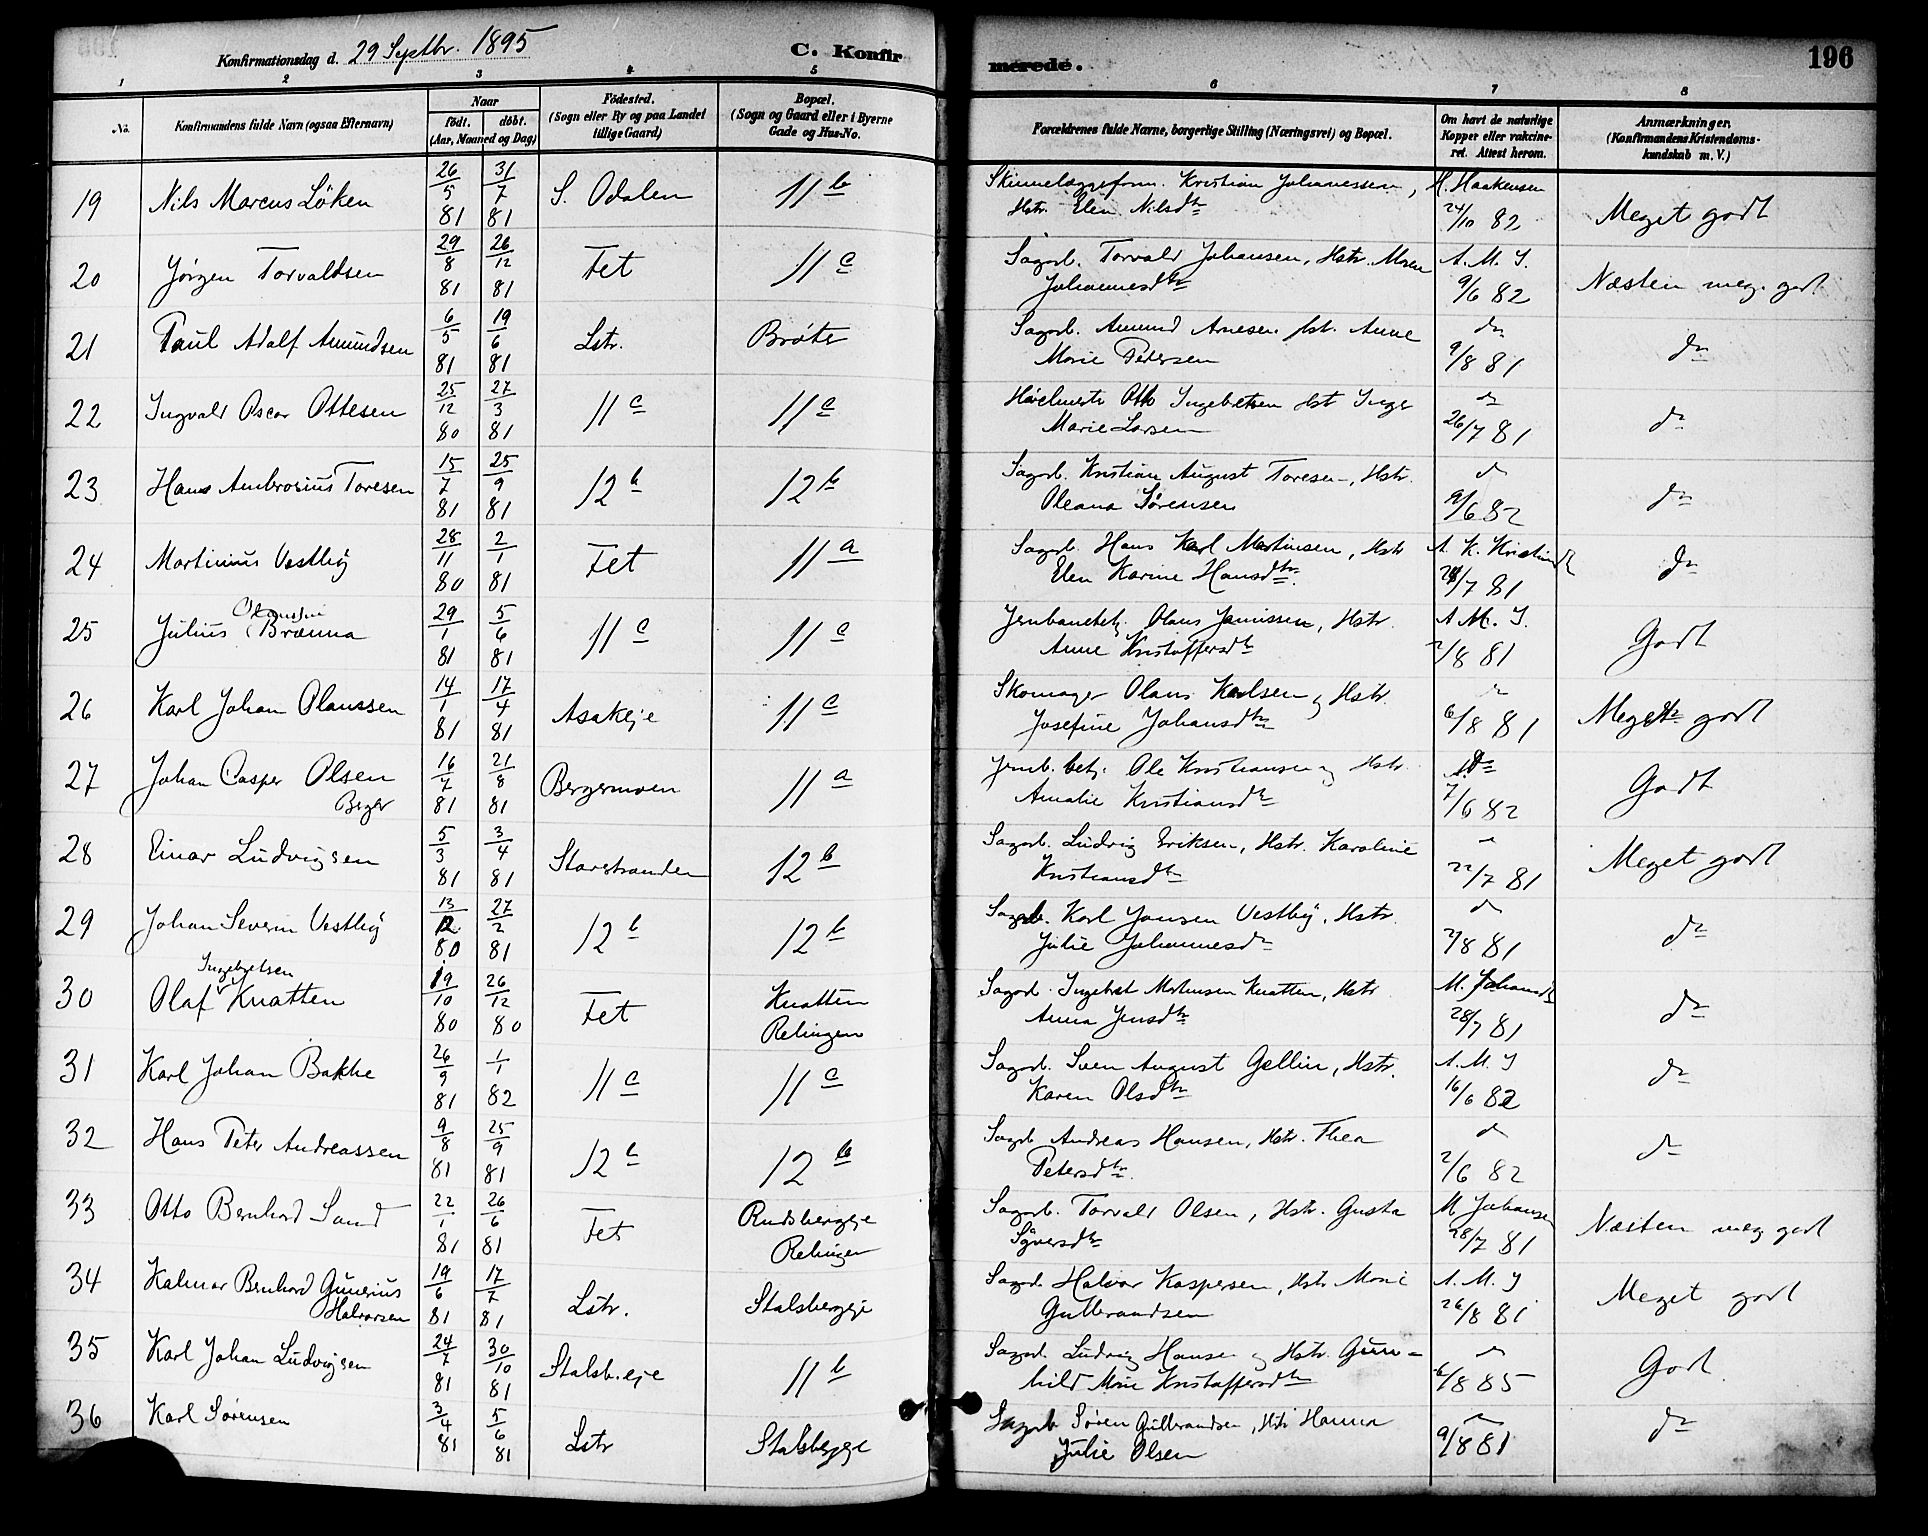 Konfirmationsdag d. 29 Septbr. 1895
C. Konfir
merede.
196
1 2 3 4 5 6 7 8
No.
Konfirmandens fulde Navn (ogsaa Efternavn)
Naar
födt. döbt.
(Aar, Maaned og Dag)
Födested.
(Sogn eller By og paa Landet
tillige Gaard)
Bopæl.
(Sogn og Gaard eller i Byerne
Gade og Hus-No.
Forældrenes fulde Navne, borgerlige Stilling (Næringsvei) og Bopæl.
Om havt de naturlige
Kopper eller vakcine-
ret. Attest herom.
Anmærkninger,
(Konfirmandens Kristendoms-
kundskab m. V.)
19 Nils Marcus Löken 26/5 81 31/7 81 S. Odalen 11 b
Kristian Johannessen, H. Haakensen
Hstr. Elen Nilsdtr 24/10 82 Meget godt
20 Jörgen Torvaldsen 29/8 81 26/12 81 Fet 11 c
Sagarb. Torvald Johansen, Hstr. Maren A. M. J.
Johannesdtr 9/6 82 Næsten meg. godt
21 Paul Adolf Amundsen 6/5 81 19/6 81 Lstr. Bröter
Sagarb. Amund Arnesen, Hst. Anne do
Marie Petersen 9/8 81 do
22 Ingvald Oscar Ottesen 25/12 80 27/3 81 11 c 11 c
Otto Ingebretsen Hst Inger do
Marie Larsen 26/7 81 do
23 Hans Ambrosius Toresen 15/7 81 25/9 81 12 b 12 b
Sagarb. Kristian August Toresen, Hstr. do
Oleana Sörensen 9/6 82 do
24 Martinius Vestby 28/11 80 2/1 81 Fet 11 a
Sagarb. Hans Karl Martinsen, Hstr A. K. Kristiansdtr
Elen Karine Hansdtr. /7 81 do
25 Julius Olaussen Brænna 29/1 81 5/6 81 11 c 11 c
Jernbanebetj. Olaus Jamissen, Hstr. A. M. J.
Anne Kristoffersdtr 2/8 81 Godt
26 Karl Johan Olaussen 14/1 81 17/4 81 Asakeje 11 c
Skomager Olaus Karlsen og Hstr. do
Josefine Johansdtr 6/8 81 Meget godt
27 Johan Casper Olsen 16/7 81 21/8 81 Bergermoen 11 a
Berger
Jernb. betj. Ole Kristiansen og Hstr. do
Amalie Kristiansdtr 7/6 82 Godt
28 Einar Ludvigsen 5/3 81 3/4 81 Storstranden 12 b
Sagarb. Ludvig Eriksen, Hstr. Karoline do
Kristiansdtr 22/7 81 Meget godt
29 Johan Severin Vestby 13/12 80 27/2 81 12 b 12 b
Sagarb. Karl Jansen Vestby, Hstr. do
Julie Johannesdtr 2/8 81 do
30 Olaf Ingebretsen Knatten 19/10 80 26/12 80 Fet Knatten
Relingen
Sagarb. Ingebret Mortensen Knatten, Hstr M. Johansdtr
Anna Jensdtr 28/7 81 do
31 Karl Johan Bakke 26/9 81 1/1 82 11 c 11 c
Sagarb. Sven August Gellin, Hstr. A. M. J
Karen Olsdtr 16/6 82 do
32 Hans Peter Andreassen 9/8 81 25/9 81 12 b 12 b
Sagarb Andreas Hansen, Hstr. Thea do
Petersdtr. 2/6 82 do
33 Otto Bernhard Sand 22/1 81 26/6 81 Fet Rudsbergeje
Relingen
Sagarb. Torvald Olsen, Hstr. Gusta M Johansen
Syversdtr 28/7 81 Næsten meg godt
34 Halmar Bernhard Gunerius 19/6 81 17/7 81 Lstr. Stalsbergeje
Halvorsen
Sagarb. Halvor Kaspersen, Hstr Marie A. M. J
Gulbrandsen 26/8 81 Meget godt
35 Karl Johan Ludvigsen 24/7 81 30/10 81 Stalsb.eje 11 b
Sagarb. Ludvig Hansen og Hstr. Gun- do
hild Marie Kristoffersdtr 6/8 85 Godt
36 Karl Sörensen 3/4 81 5/6 81 Lstr Stalsbergeje
Sagarb Sören Gulbrandsen, Hstr Hanna do
Julie Olsen 9/8 81 do